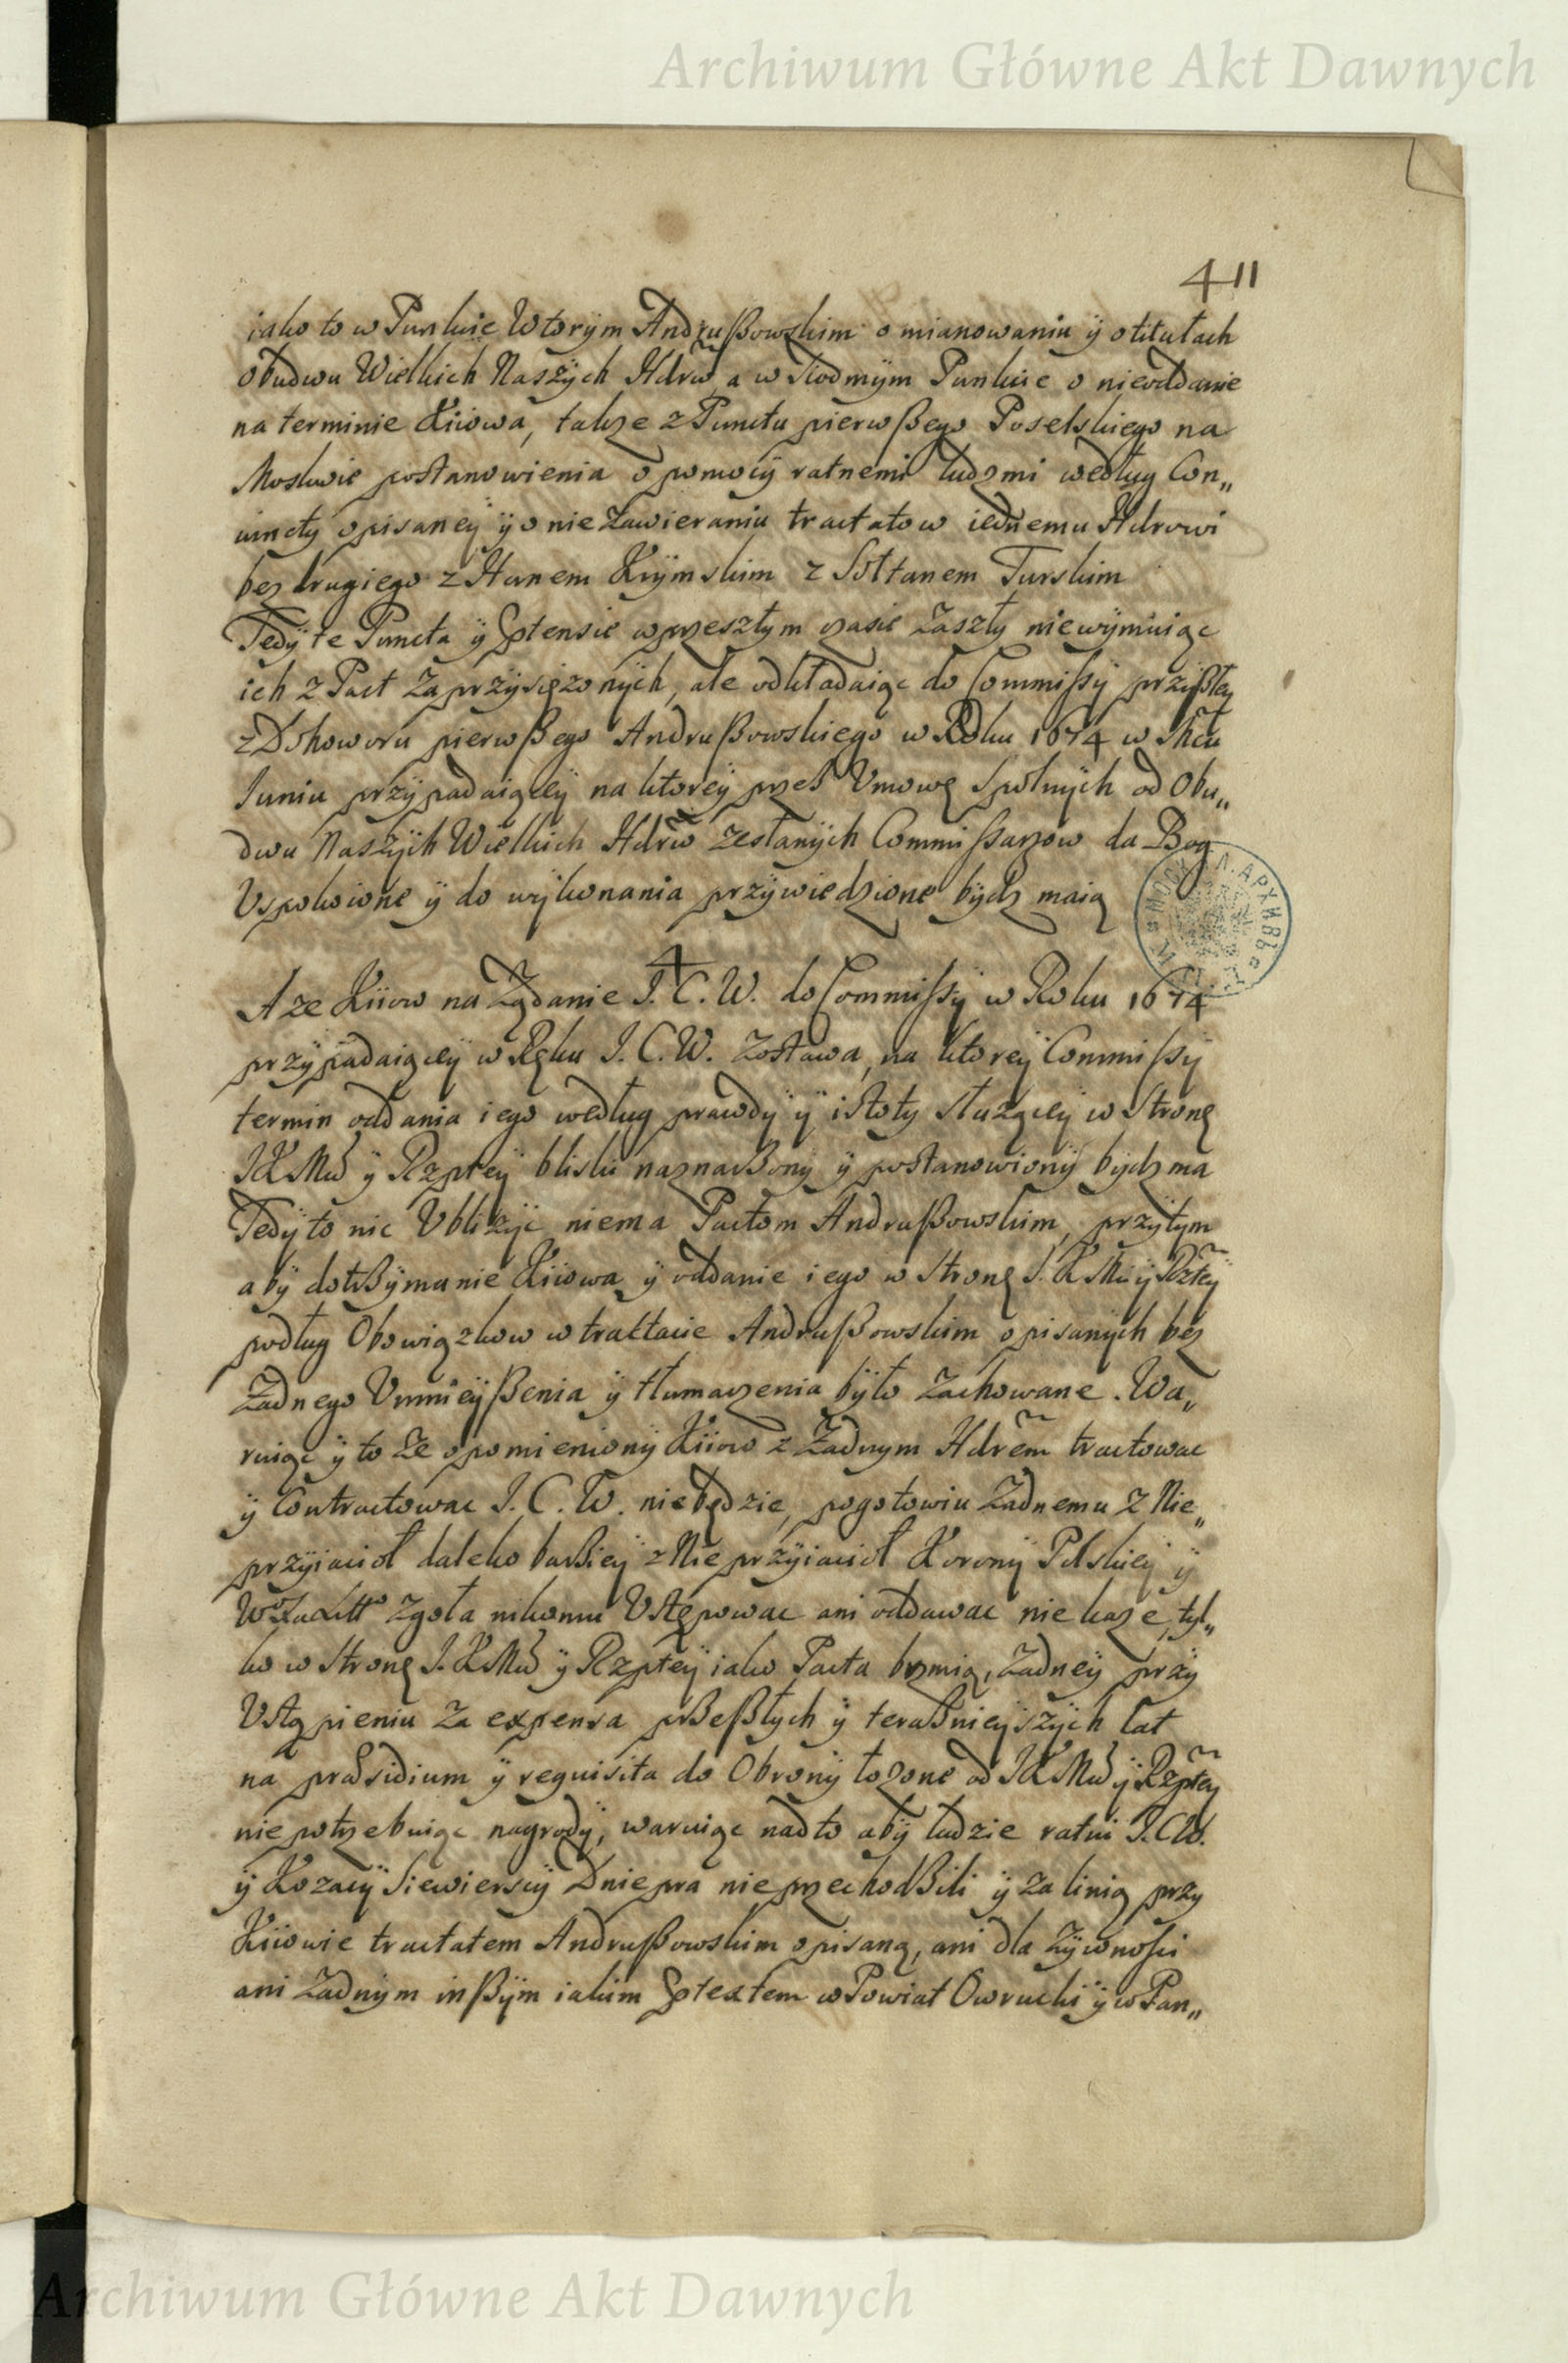 Archiwum Główne Akt Dawnych
411
iako to w Punkcie Wtorÿm Andrußowskim o mianowaniu ÿ o titułach
obudwu Wielkich Naszÿch Hdrw̃, a w siodmÿm Punkcie o nieoddanie
na terminie Kiiowa, takze z Punctu pierwßego Poselskiego na
Moskwie postanowienia o pomocÿ ratnemi ludzmi według Con„
iunctÿ opisaneÿ ÿ o nie zawieraniu tractatow iednemu Hdrowi
bez drugiego z Hanem Krÿmskim z Sołtanem Turskim
Tedÿ te Puncta ÿ Ptensie w przeszłym czasie zaszłÿ niewÿmuiąc
ich z Pact zaprzÿsięzonÿch, ale odkładaiąc do Commißÿ przÿßłeÿ
z Dohoworu pierwßego Andrußowskiego w Roku 1674 w Mcu
Juniu przÿpadaiąceÿ na ktoreÿ przes Vmowę spolnÿch od Obu„
dwu Naszÿch Wielkich Hdrw̃ zesłanÿch Commißarzow da Bog
Vspokoione ÿ do wÿkonania przÿwiedzione bÿdz maią
4
A ze Kiiow na Ządanie I. C. W. do Commißÿ w Roku 1674
przÿpadaiąceÿ w Ręku I. C. W. zostawa, na ktoreÿ Commißÿ
termin oddania iego według prawdÿ ÿ istotÿ słuząceÿ w stronę
IKMci ÿ Rzpteÿ bliski naznaczonÿ ÿ postanowionÿ bÿdz ma
Tedÿ to nic Vblizÿc niema Pactom Andrußowskim, przÿtym
abÿ dotrzÿmanie Kiiowa ÿ oddanie iego w stronę I. K Mci ÿ Rzteÿ
podług Obowiązkow w traktacie Andrußowskim opisanÿch bez
Zadnego Vmnieÿßenia ÿ tłumaczenia bÿło zachowane. Wa„
ruiąc ÿ to Ze o pomienionÿ Kiiow z Zadnym Hdrem̃ tractowac
ÿ Contractowac I. C. W. niebędzie, pogotowiu Zadnemu z Nie„
przÿiaciół daleko barziey z Nieprzÿiaciół Koronÿ Polskieÿ ÿ
WoXaLitto zgoła nikomu Vstępowac ani oddawac nie kaze, tÿl„
ko w stronę I. KMci ÿ Rzpteÿ iako Pacta brzmią, Zadneÿ przÿ
Vstąpieniu za expensa przeßłych ÿ teraznieÿszÿch lat
na præsidium ÿ requisita do Obronÿ łozone od IKMci ÿ Rzpteÿ
nie potrzebuiąc nagrodÿ, waruiąc nadto abÿ ludzie ratni I.CW.
ÿ Kozacÿ Siewierscÿ Dniepra nieprzechodzili ÿ za linią przy
Kiiowie tractatem Andrußowskim opisaną, ani dla Zÿwnosci
ani Zadnÿm inßÿm iakim Ptextem w Powiat Owrucki ÿ w Pan„
Archiwum Główne Akt Dawnych